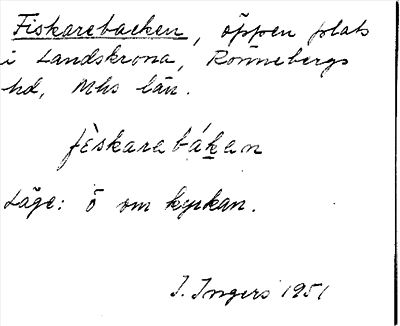 Fiskarebacken, öppen plats
i Landskrona, Rönnebergs
hd, Mhs län.
fèskarebáken
Läge: ö om kyrkan.
I. Ingers 1951